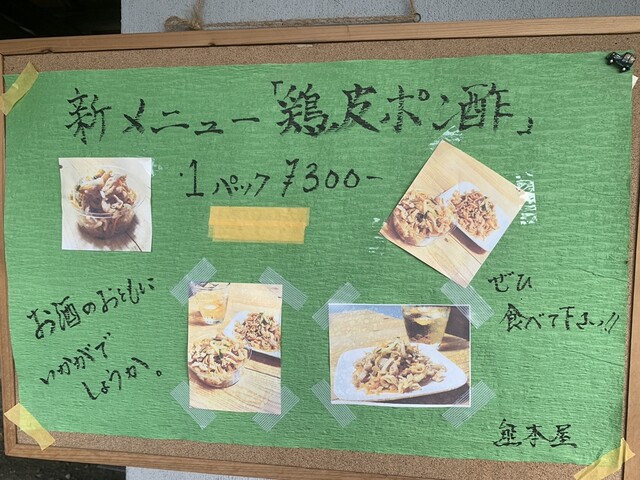 新メニュー「鶏皮ポン酢」
1パック ¥300-
お酒のおともに
いかがで
しょうか。
ぜひ
食べて下さいっ!!
熊本屋